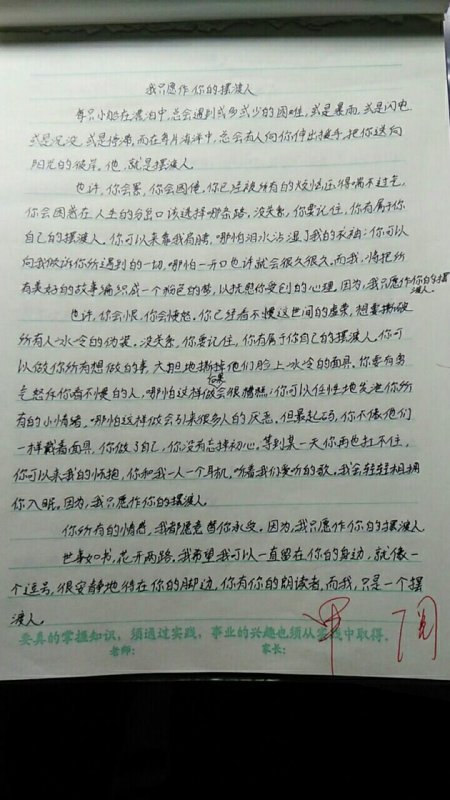 我只愿作你的摆渡人
每只小船在漂泊中,总会遇到或多或少的困难,或是暴雨,或是闪电
或是沉没,或是停滞,而在每片海洋中,总会有人向你伸出援手,把你送向
阳光的彼岸。他,就是摆渡人。
也许,你会累,你会困倦。你已经被所有的烦恼压得喘不过气,
你会困惑在人生的分岔口该选择哪条路,没关系,你要记住,你有属于你
自己的摆渡人。你可以来靠我肩膀,哪怕泪水沾湿了我的衣袖;你可以
向我倾诉你所遇到的一切,哪怕一开口也许就会很久很久。而我,将把所
有美好的故事编织成一个粉色的梦,以抚慰你受创的心理。因为,我只愿作你的摆渡人。
也许,你会恨,你会愤怒。你已经看不惯这世间的虚荣,想要撕破
所有人冰冷的伪装。没关系,你要记住,你有属于你自己的摆渡人。你可
以做你所有想做的事,大胆地撕掉他们脸上冰冷的面具。你要有勇
气怒斥你看不惯的人,哪怕这样做后果会很糟糕;你可以任性地发泄你所
有的小情绪,哪怕这样做会引来很多人的厌恶。但最起码,你不像他们
一样戴着面具,你做了自己,你没有忘掉初心。等到某一天你再也扛不住,
你可以来我的怀抱,你和我一人一个耳机,听着我们爱听的歌,我会轻轻相拥
你入眠。因为,我只愿作你的摆渡人。
你所有的情愁,我都愿意替你承受。因为,我只愿作你的摆渡人
世事如书,花开两路,我希望我可以一直留在你的身边,就像一
个逗号,很安静地待在你的脚边。你有你的朗读者,而我,只是一个摆
渡人。
要真的掌握知识,须通过实践,事业的兴趣也须从实践中取得。
老师: 家长:
阅